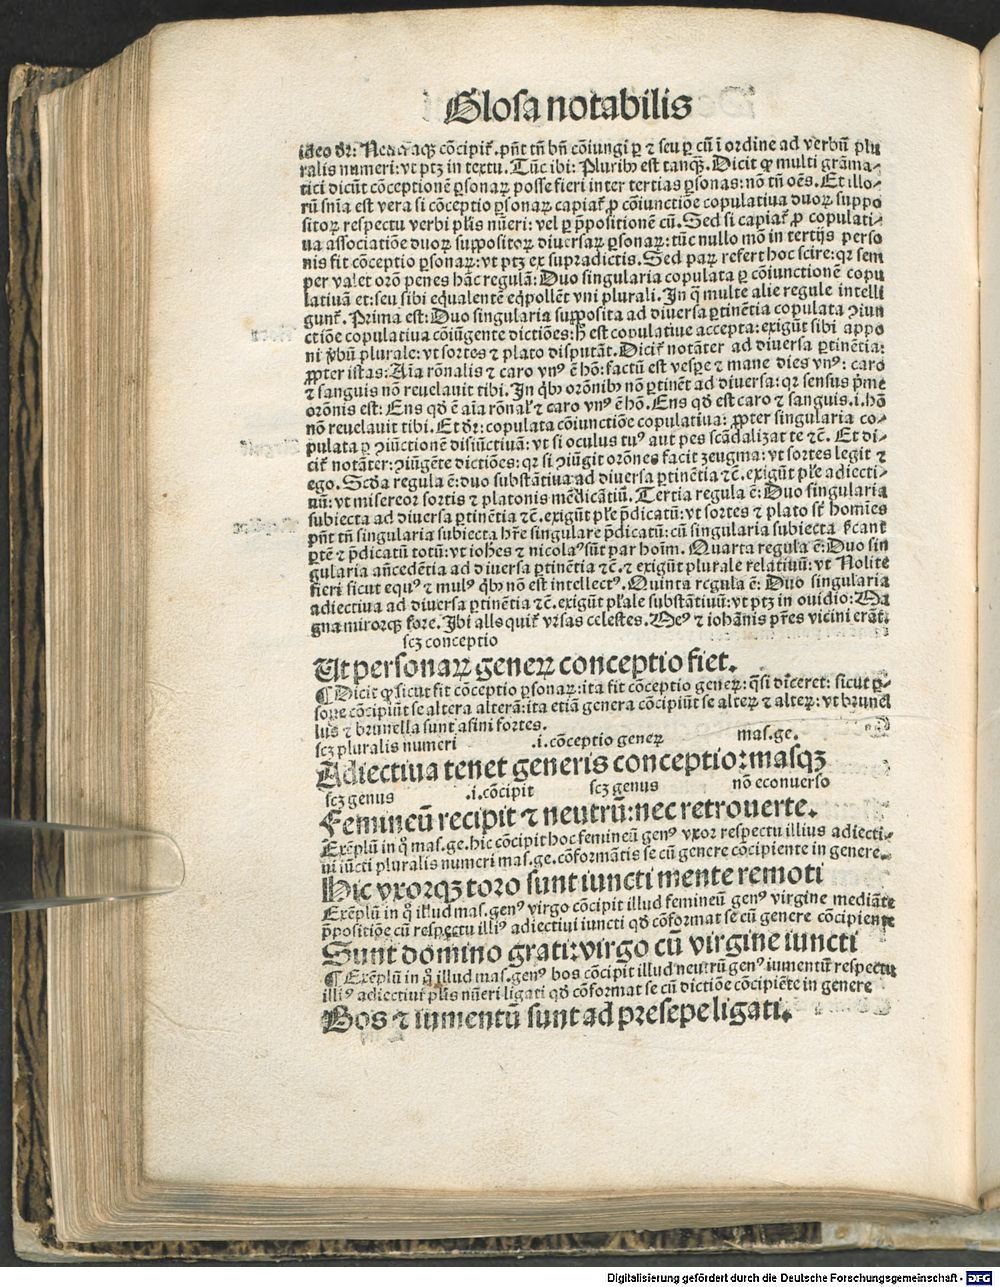 Glosa notabilis
ideo dr: Neutraqꝫ cōcipiť. pn̄t tn̄ bn̄ cōiungi ꝑ ⁊ seu ꝑ cū ī ordine ad verbū plu
ralis numeri: vt ptꝫ in textu. Tūc ibi: Pluribꝰ est tanqꝫ. Dicit ꝙ multi grāma⸗
tici dicūt cōceptionē ꝑsonaꝝ posse fieri inter tertias ꝑsonas: nō tn̄ oēs. Et illo⸗
rū snīa est vera si cōceptio ꝑsonaꝝ capiať ꝓ cōiunctiōe copulatiua duoꝝ suppo
sitoꝝ respectu verbi plis nūeri: vel ꝑ p̄positionē cū. Sed si capiať ꝓ copulati⸗
ua associatiōe duoꝝ suppositoꝝ diuersaꝝ ꝑsonaꝝ: tūc nullo mō in tertijs perso
nis fit cōceptio ꝑsonaꝝ: vt ptꝫ ex supradictis. Sed paꝝ refert hoc scire: qꝛ sem
per valet orō penes hāc regulā: Duo singularia copulata ꝑ cōiunctionē copu
latiuā et: seu sibi eq̄ualentē eq̄pollēt vni plurali. In q̄ multe alie regule intelli
gunť. Prima est: Duo singularia supposita ad diuersa ꝑtinētia copulata ꝯiun
ctiōe copulatiua cōiūgente dictiōes: hꝫ est copulatiue accepta: exigūt sibi appo
ni v̄bū plurale: vt sortes ⁊ plato disputāt. Diciť notāter ad diuersa ꝑtinētia:
ꝓpter istas: Aīa rōnalis ⁊ caro vnꝰ ē hō: factū est vespe ⁊ mane dies vnꝰ: caro
⁊ sanguis nō reuelauit tibi. In qͥbꝰ orōnibꝰ nō ꝑtinēt ad diuersa: qꝛ sensus p̄me
orōnis est: Ens qd̄ ē aīa rōnaľ ⁊ caro vnꝰ ē hō. Ens qd̄ est caro ⁊ sanguis .i. hō
nō reuelauit tibi. Et dr: copulata cōiunctiōe copulatiua: ꝓpter singularia co⸗
pulata ꝑ ꝯiūctionē disiūctiuā: vt si oculus tuꝰ aut pes scādalizat te ⁊c̄. Et di⸗
ciť notāter: ꝯiūgēte dictiōes: qꝛ si ꝯiūgit orōnes facit zeugma: vt sortes legit ⁊
ego. Scd̄a regula ē: duo substātiua ad diuersa ꝑtinētia ⁊c̄. exigūt pľe adiecti⸗
uū: vt misereor sortis ⁊ platonis mēdicātiū. Tertia regula ē: Duo singularia
subiecta ad diuersa ꝑtinētia ⁊c̄. exigūt pľe p̄dicatū: vt sortes ⁊ plato sť homīes
pn̄t tn̄ singularia subiecta hr̄e singulare p̄dicatū: cū singularia subiecta
ꝑtē ⁊ p̄dicatū totū: vt iohēs ⁊ nicolaꝰ sūt par hoīm. Quarta regula ē: Duo sin
gularia an̄cedētia ad diuersa ꝑtinētia ⁊c̄. ⁊ exigūt plurale relatiuū: vt Nolite
fieri sicut equꝰ ⁊ mulꝰ qͥbꝰ nō est intellectꝰ. Quinta regula ē: Duo singularia
adiectiua ad diuersa ꝑtinētia ⁊c̄. exigūt pľale substātiuū: vt ptꝫ in ouidio: Ma
gna minorqꝫ fore. Ibi als quiť vrsas celestes. Meꝰ ⁊ iohānis pr̄es vicini erāt.
scꝫ conceptio
Ut personaꝝ geneꝝ conceptio fiet.
¶ Dicit ꝙ sicut fit cōceptio ꝑsonaꝝ: ita fit cōceptio geneꝝ: q̄si diceret: sicut ꝑ⸗
sone cōcipiūt se altera alterā: ita etiā genera cōcipiūt se alteꝝ ⁊ alteꝝ: vt brunel
lus ⁊ brunella sunt asini fortes.
scꝫ pluralis numeri .i. cōceptio geneꝝ mas.ge.
Adiectiua tenet generis conceptio: masqꝫ
scꝫ genus .i. cōcipit scꝫ genus nō econuerso
Femineū recipit ⁊ neutrū: nec retrouerte.
Exēplū in qͦ mas.ge. hic cōcipit hoc femineū genꝰ vxor respectu illius adiecti⸗
ui iūcti pluralis numeri mas.ge. cōformātis se cū genere cōcipiente in genere.
Hic vxorqꝫ toro sunt iuncti mente remoti
Exēplū in qͦ illud mas.genꝰ virgo cōcipit illud femineū genꝰ virgine mediāte
p̄positiōe cū respectu illiꝰ adiectiui iuncti qd̄ cōformat se cū genere cōcipiente
Sunt domino grati: virgo cū virgine iuncti
¶ Exēplū in qͦ illud mas.genꝰ bos cōcipit illud neutrū genꝰ iumentū respectu
illiꝰ adiectiui plis nūeri ligati qd̄ cōformat se cū dictiōe cōcipiēte in genere
Bos ⁊ iumentū sunt ad presepe ligati.
Digitalisierung gefördert durch die Deutsche Forschungsgemeinschaft - DFG